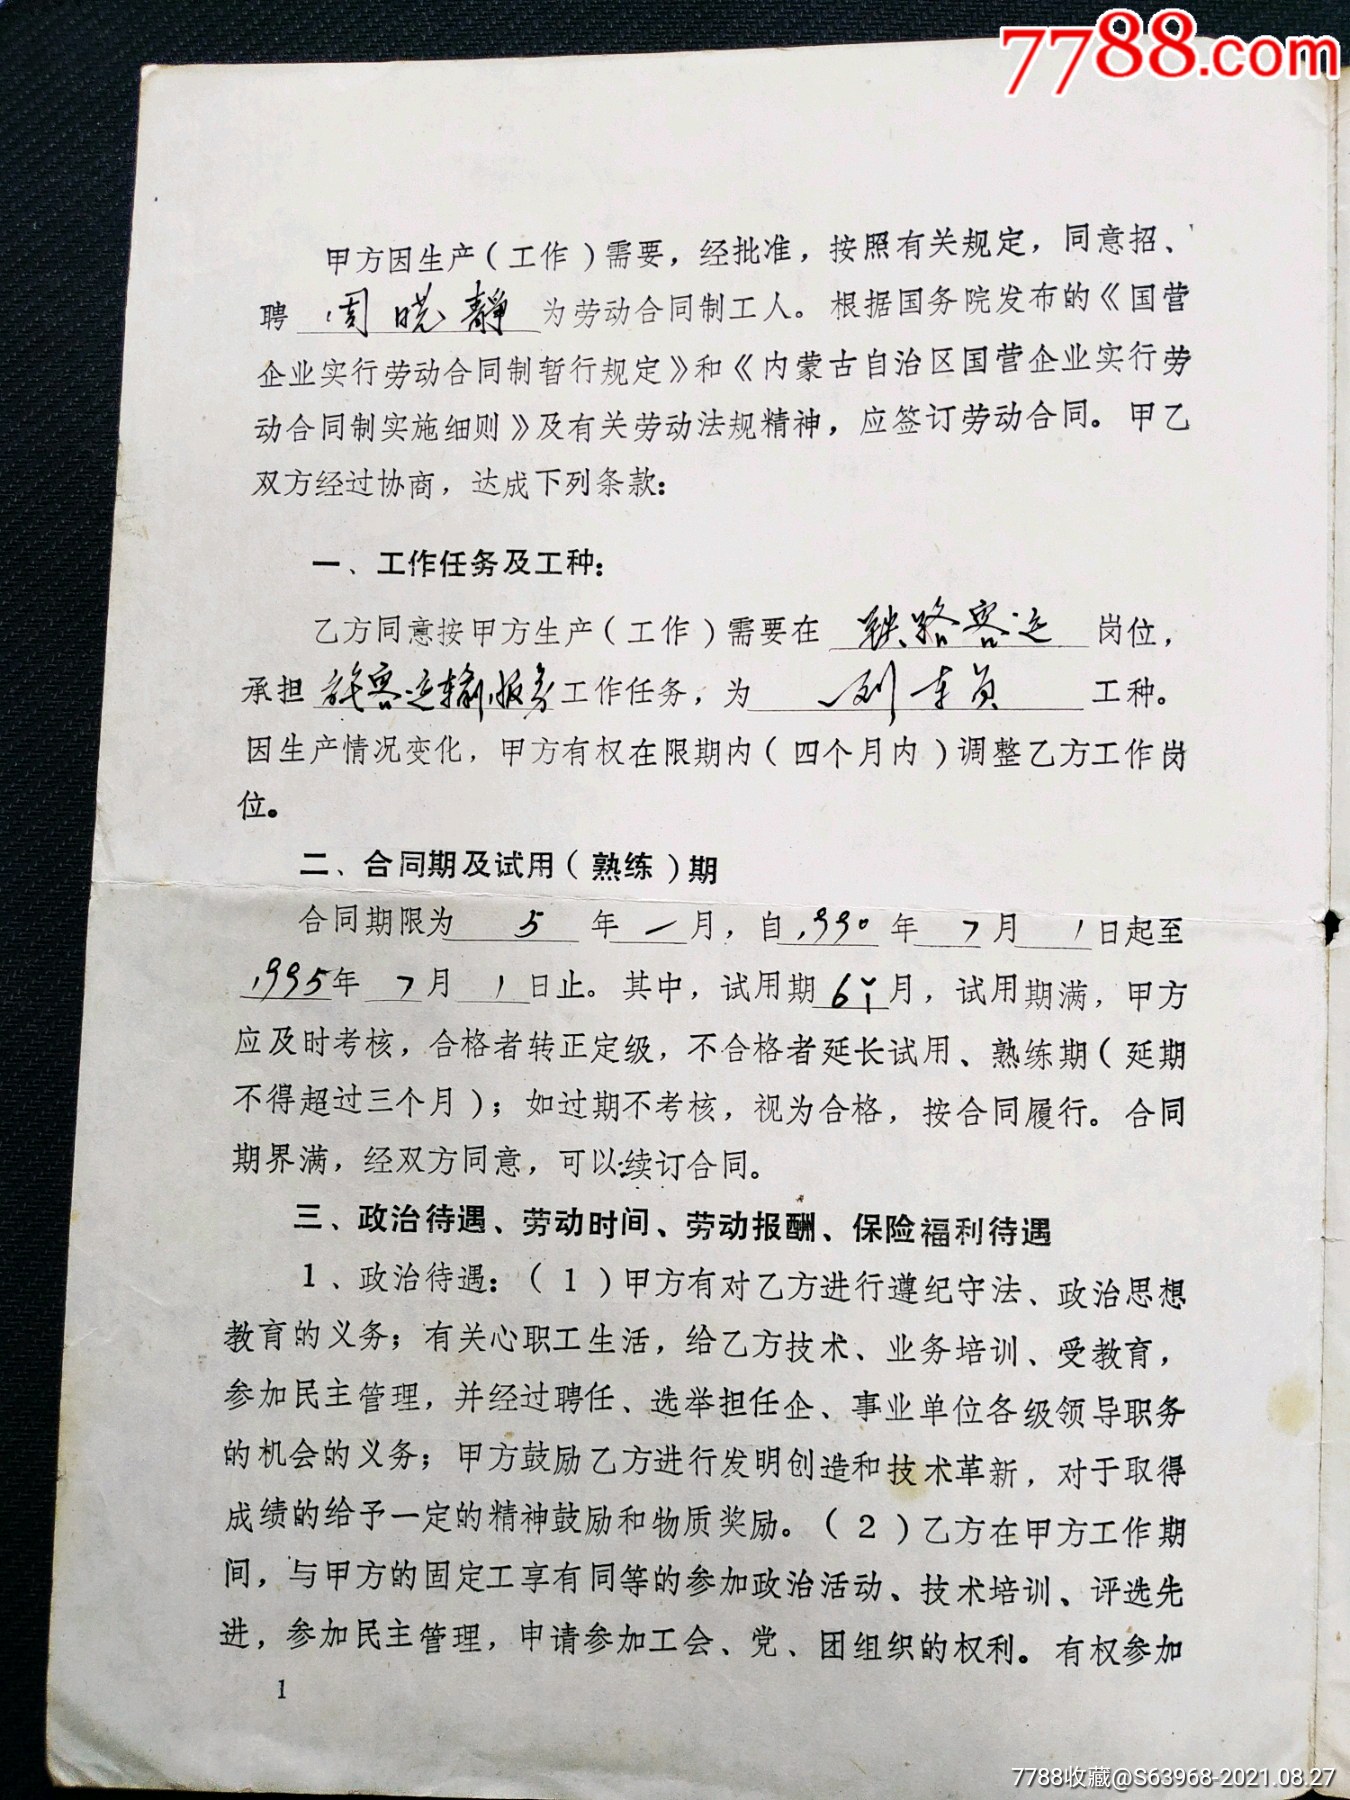 7788.com
甲方因生产(工作)需要，经批准，按照有关规定，同意招、
聘 周晓静 为劳动合同制工人。根据国务院发布的《国营
企业实行劳动合同制暂行规定》和《内蒙古自治区国营企业实行劳
动合同制实施细则》及有关劳动法规精神，应签订劳动合同。甲乙
双方经过协商，达成下列条款：
一、工作任务及工种：
乙方同意按甲方生产(工作)需要在 铁路客运 岗位，
承担 旅客运输服务 工作任务，为 列车员 工种。
因生产情况变化，甲方有权在限期内(四个月内)调整乙方工作岗
位。
二、合同期及试用(熟练)期
合同期限为 5 年 一 月，自 1990 年 7 月 1 日起至
1995 年 7 月 1 日止。其中，试用期 6个 月，试用期满，甲方
应及时考核，合格者转正定级，不合格者延长试用、熟练期(延期
不得超过三个月)；如过期不考核，视为合格，按合同履行。合同
期界满，经双方同意，可以续订合同。
三、政治待遇、劳动时间、劳动报酬、保险福利待遇
1、政治待遇：(1)甲方有对乙方进行遵纪守法、政治思想
教育的义务；有关心职工生活，给乙方技术、业务培训、受教育，
参加民主管理，并经过聘任、选举担任企、事业单位各级领导职务
的机会的义务；甲方鼓励乙方进行发明创造和技术革新，对于取得
成绩的给予一定的精神鼓励和物质奖励。(2)乙方在甲方工作期
间，与甲方的固定工享有同等的参加政治活动、技术培训、评选先
进，参加民主管理，申请参加工会、党、团组织的权利。有权参加
1
7788收藏@S63968-2021.08.27